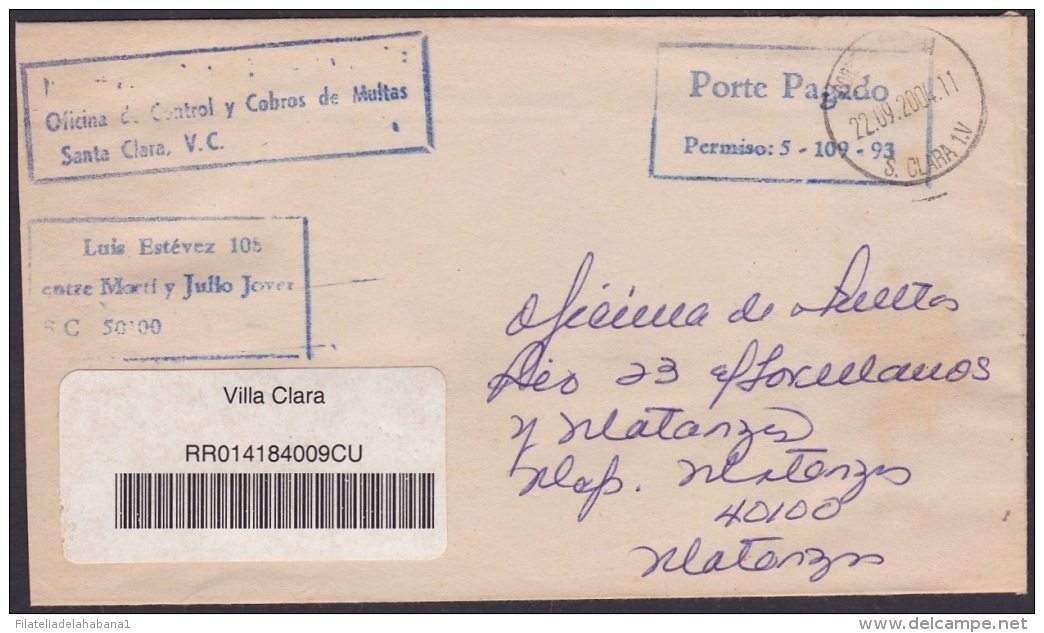 Oficina de Control y Cobros de Multas
Santa Clara, V.C.
Porte Pagado
Permiso: 5 - 109 - 93
22.09.2004.11
S. CLARA 1.V
Luis Estévez 108
entre Martí y Julio Jover
S.C 50100
Villa Clara
RR014184009CU
Oficina de Multas
Rio 33 e/
y Matanzas
Mcp. Matanzas
40100
Matanzas
Filateliadelahabana1
delcampe.net